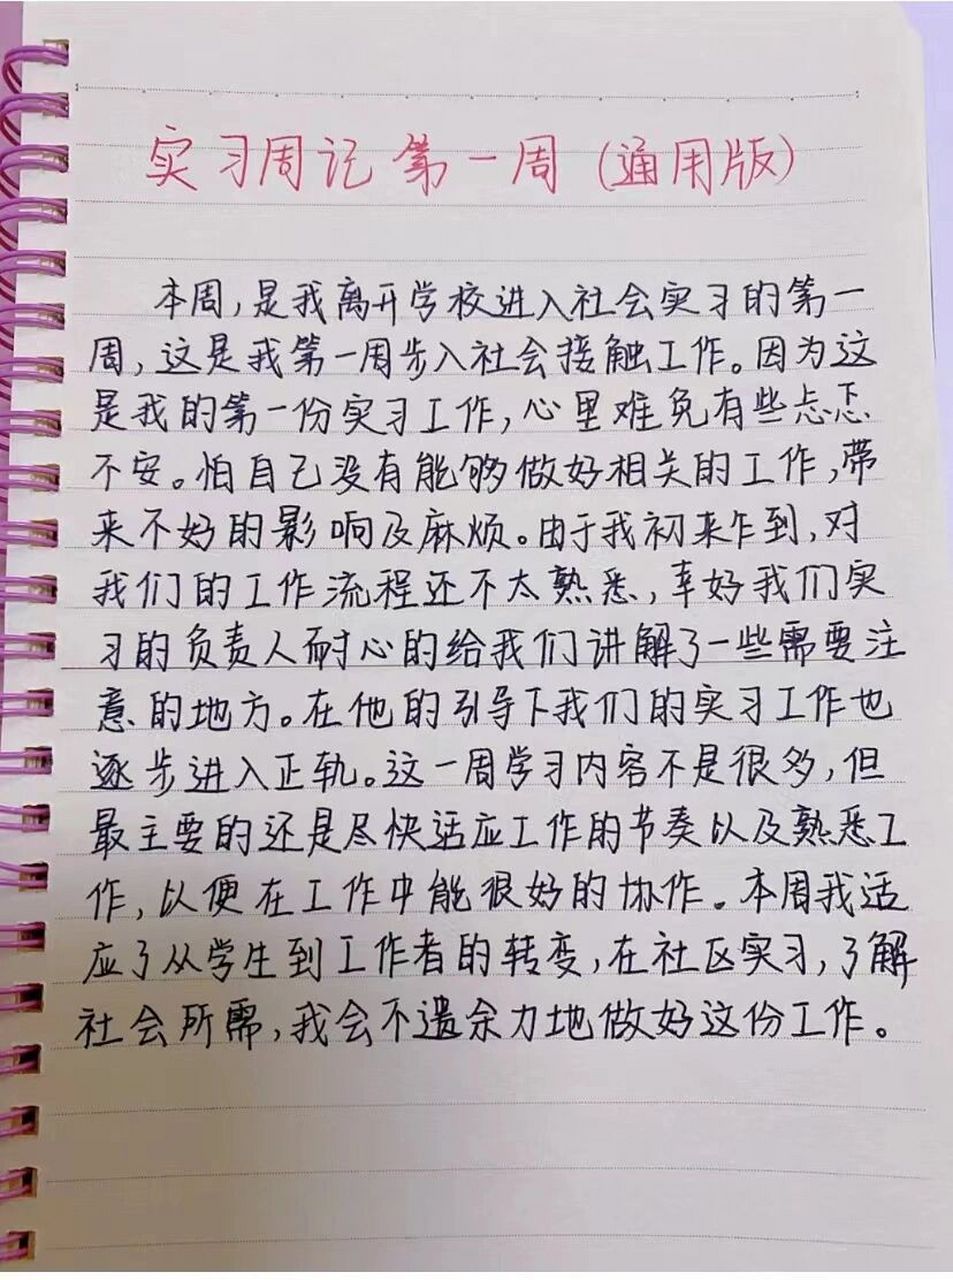 实习周记第一周(通用版)
本周,是我离开学校进入社会实习的第一
周,这是我第一周步入社会接触工作。因为这
是我的第一份实习工作,心里难免有些忐忑
不安。怕自己没有能够做好相关的工作,带
来不好的影响及麻烦。由于我初来乍到,对
我们的工作流程还不太熟悉,幸好我们实
习的负责人耐心的给我们讲解了一些需要注
意的地方。在他的引导下我们的实习工作也
逐步进入正轨。这一周学习内容不是很多,但
最主要的还是尽快适应工作的节奏以及熟悉工
作,以便在工作中能很好的协作。本周我适
应了从学生到工作者的转变,在社区实习,了解
社会所需,我会不遗余力地做好这份工作。